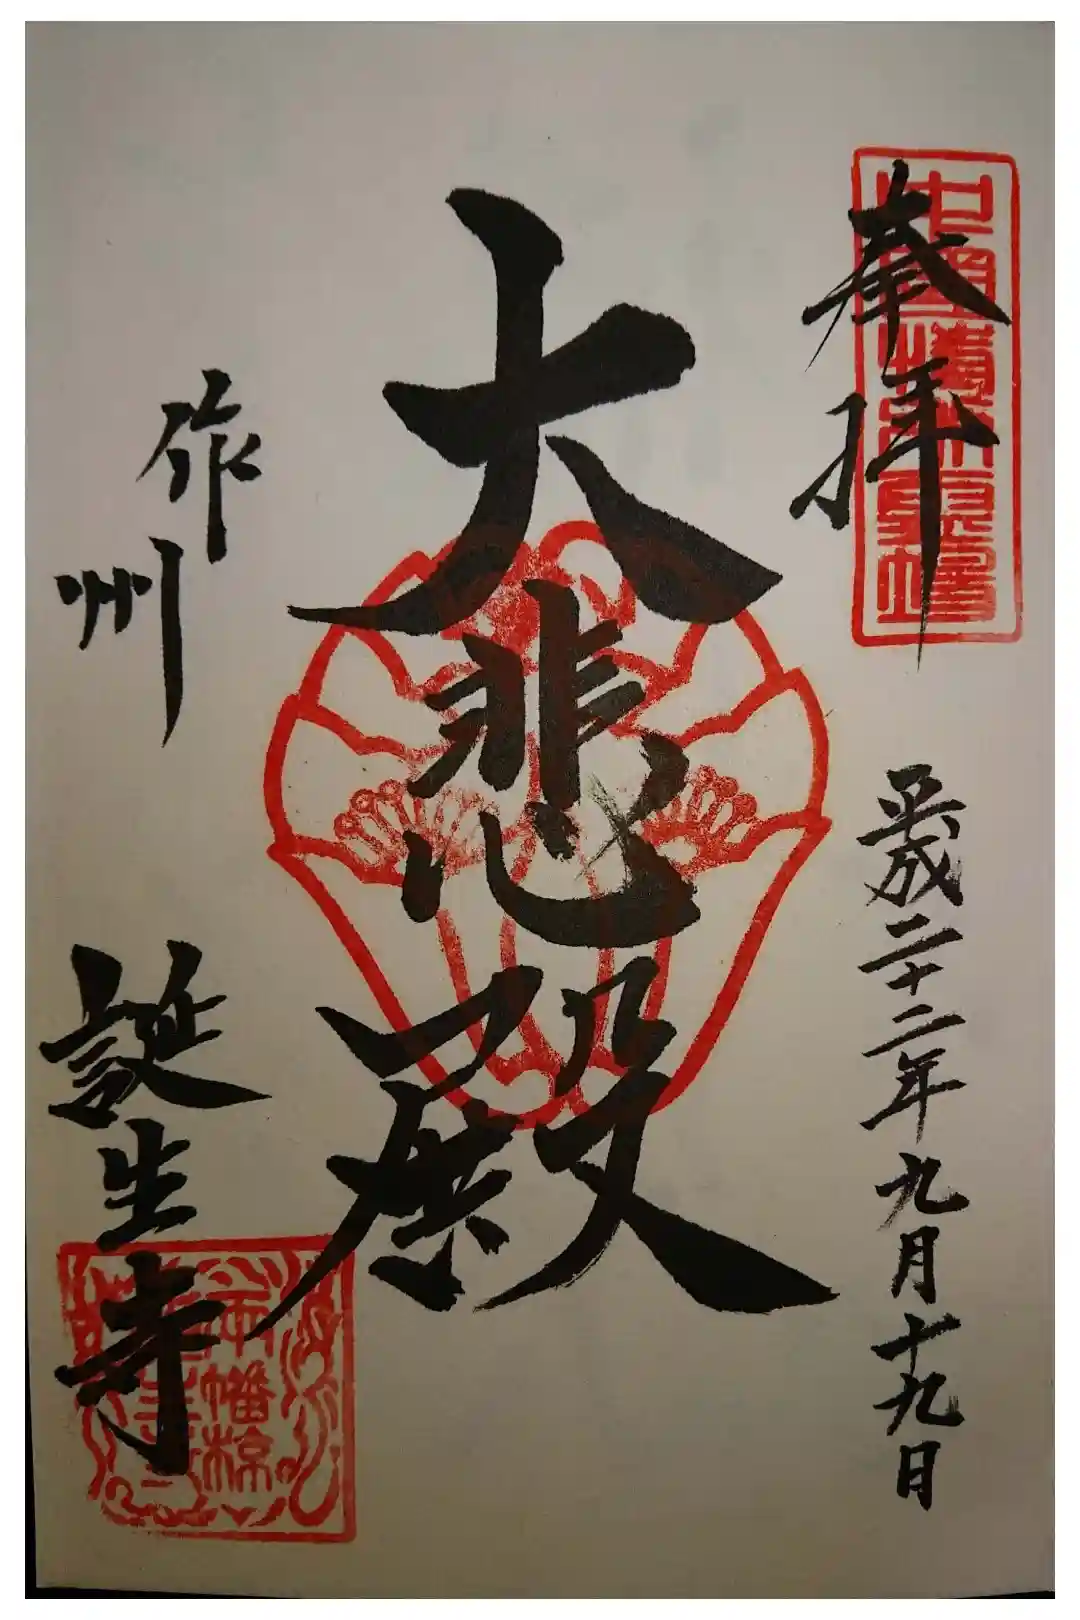 奉拝
平成二十二年九月十九日
大悲殿
作州
誕生寺
両幡椋